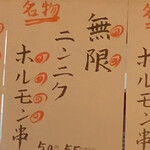 名物
無限
ニンニク
ホルモン串
ホルモン串